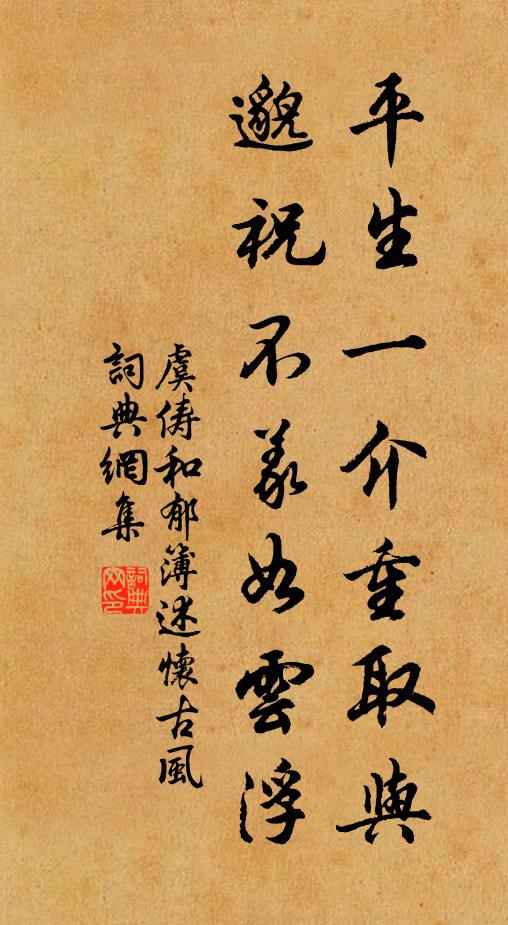 平生一介重取與
邈祝不義如雲浮
虞儔和郁簿述懷古風
詞典網集
詞典网印